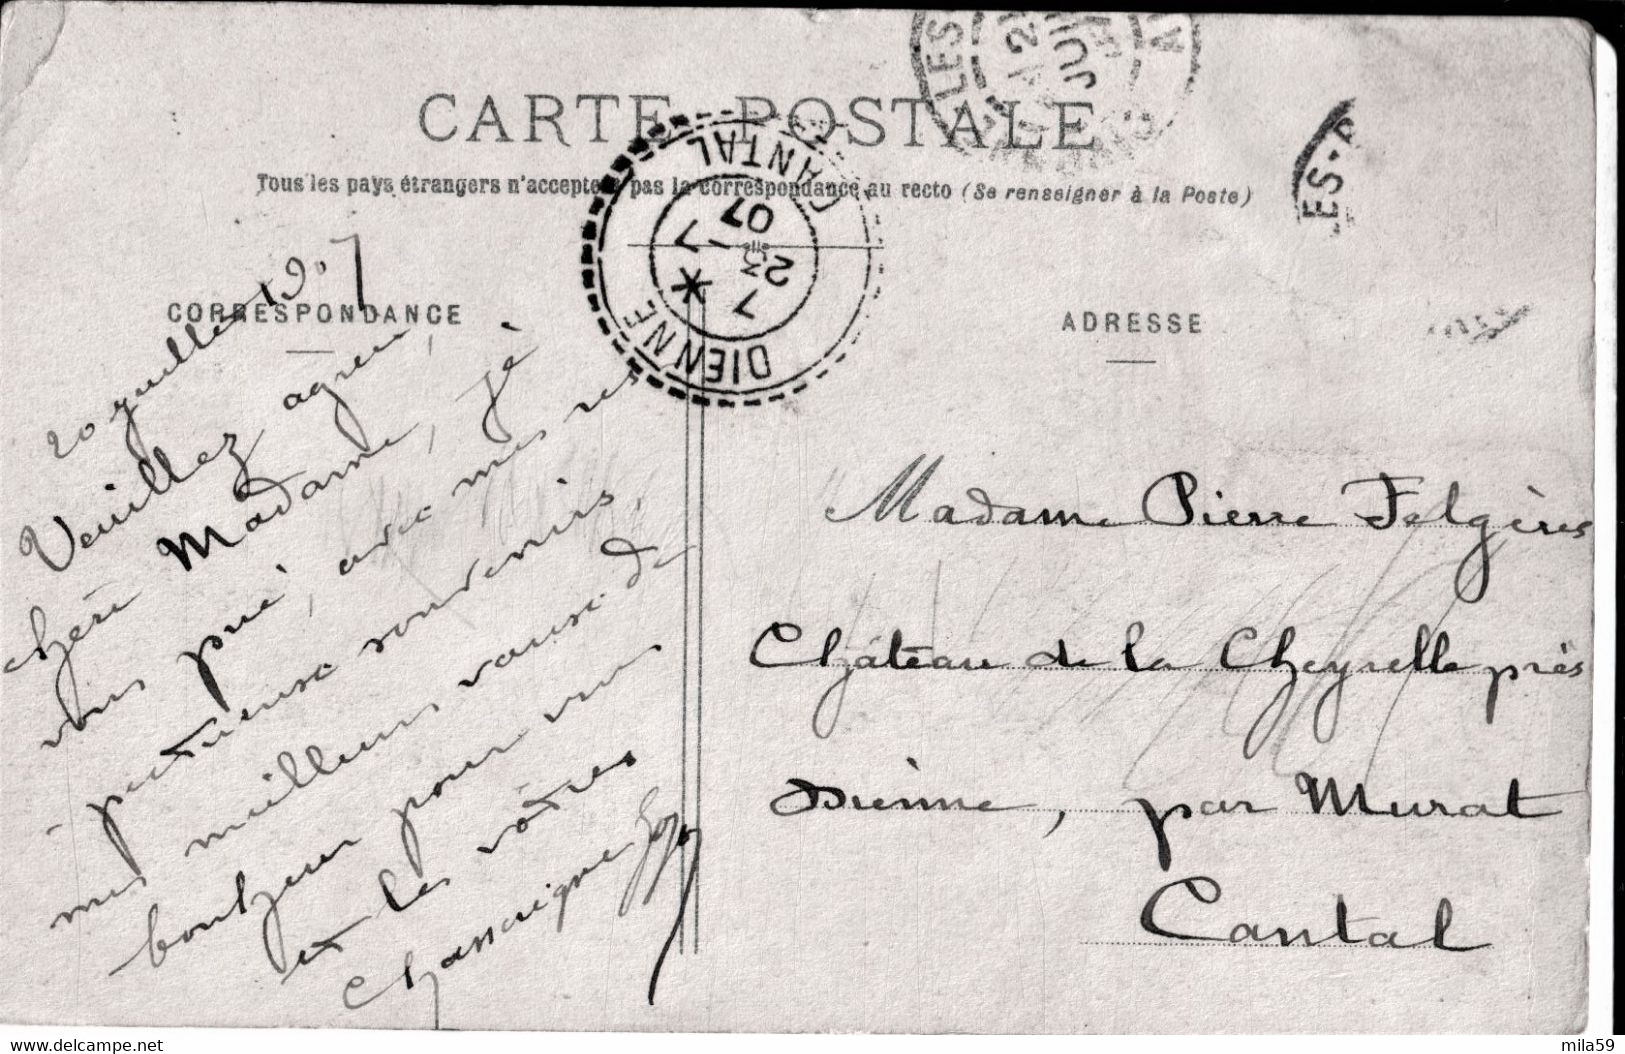 CARTE POSTALE
Tous les pays étrangers n'acceptent pas la correspondance au recto (Se renseigner à la Poste)
CORRESPONDANCE
ADRESSE
20 juillet 1907
Veuillez agréer,
chère Madame, je
vous prie, avec mes res
-pectueux souvenirs,
mes meilleurs vœux de
bonheur pour vous
et les vôtres
Madame Pierre Felgères
Château de la Cheyrelle près
Dienne, par Murat
Cantal
DIENNE
CANTAL
7
2 - 7
07
LES
12
JUIL
ES-A
www.delcampe.net
mila59